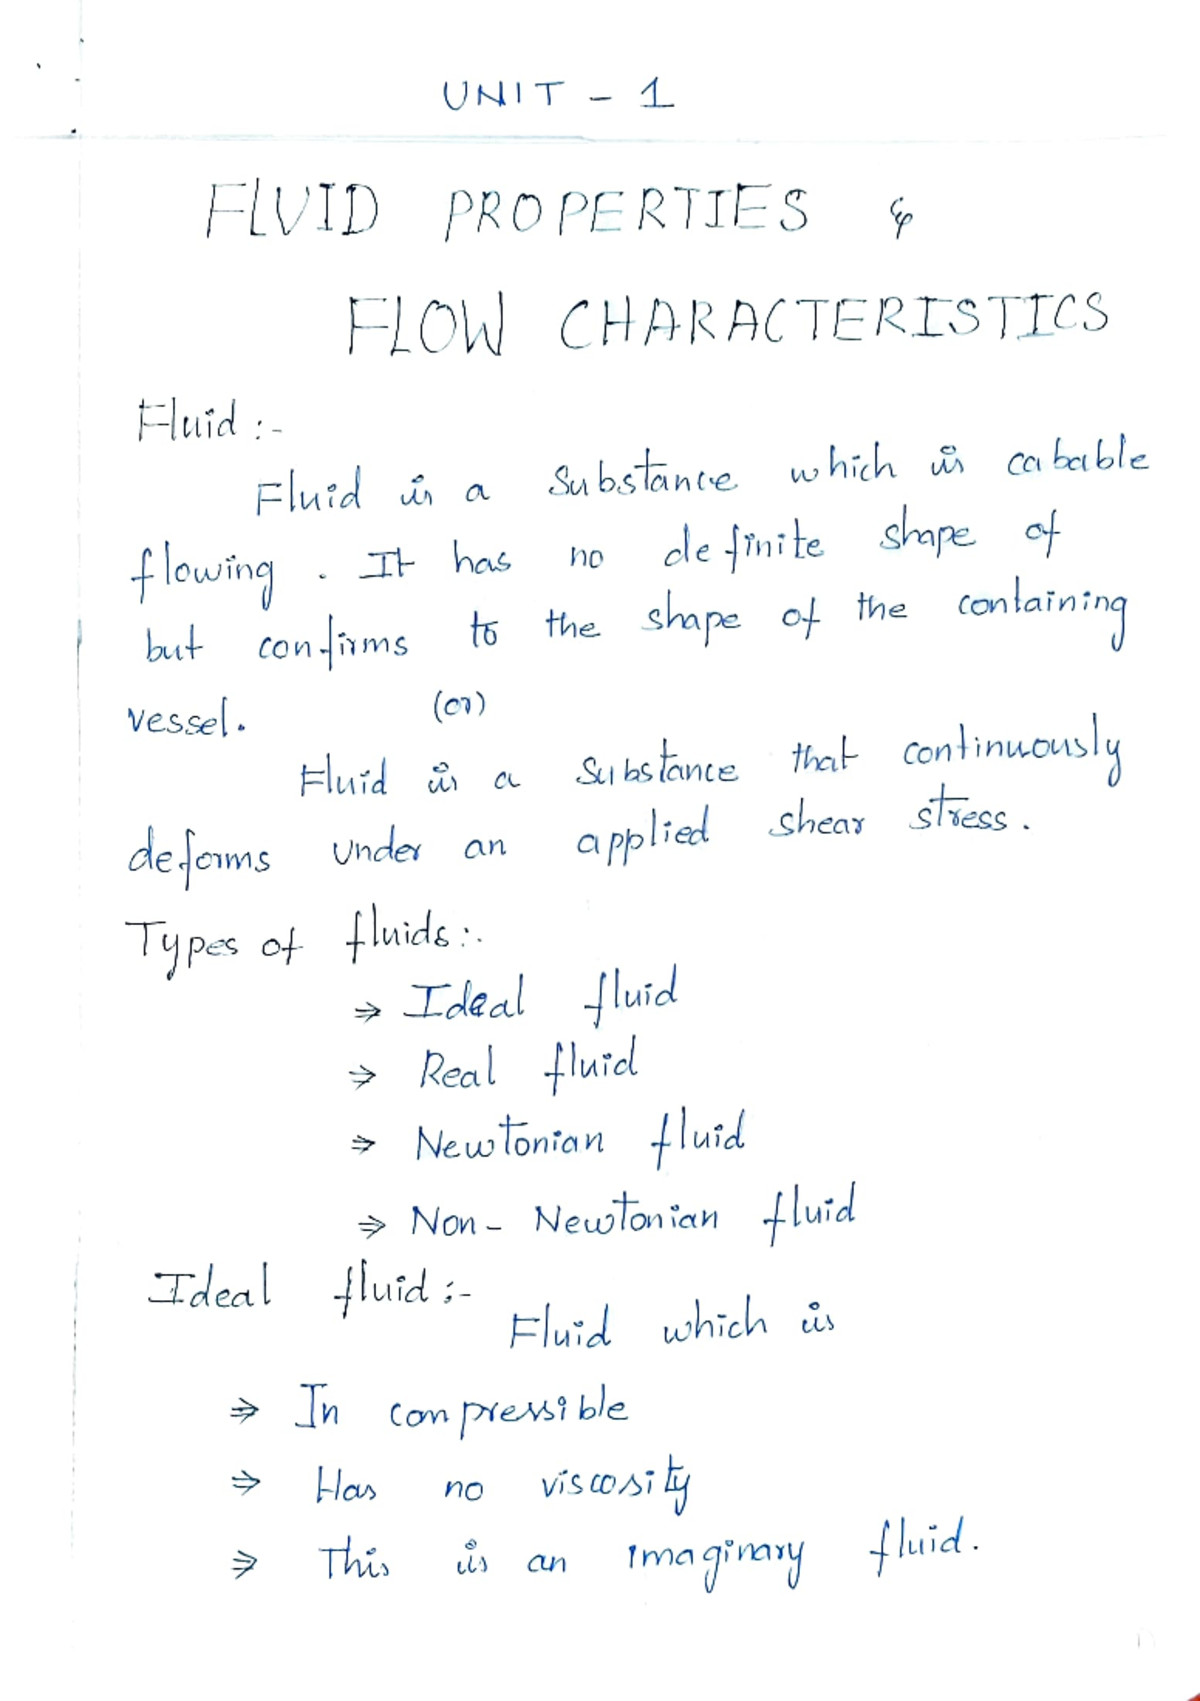 UNIT - 1
FLUID PROPERTIES &
FLOW CHARACTERISTICS
Fluid :-
Fluid is a substance which is cabable
flowing . It has no definite shape of
but confirms to the shape of the containing
vessel. (or)
Fluid is a substance that continuously
deforms under an applied shear stress.
Types of fluids :-
⇒ Ideal fluid
⇒ Real fluid
⇒ Newtonian fluid
⇒ Non - Newtonian fluid
Ideal fluid :-
Fluid which is
⇒ In compressible
⇒ Has no viscosity
⇒ This is an imaginary fluid.